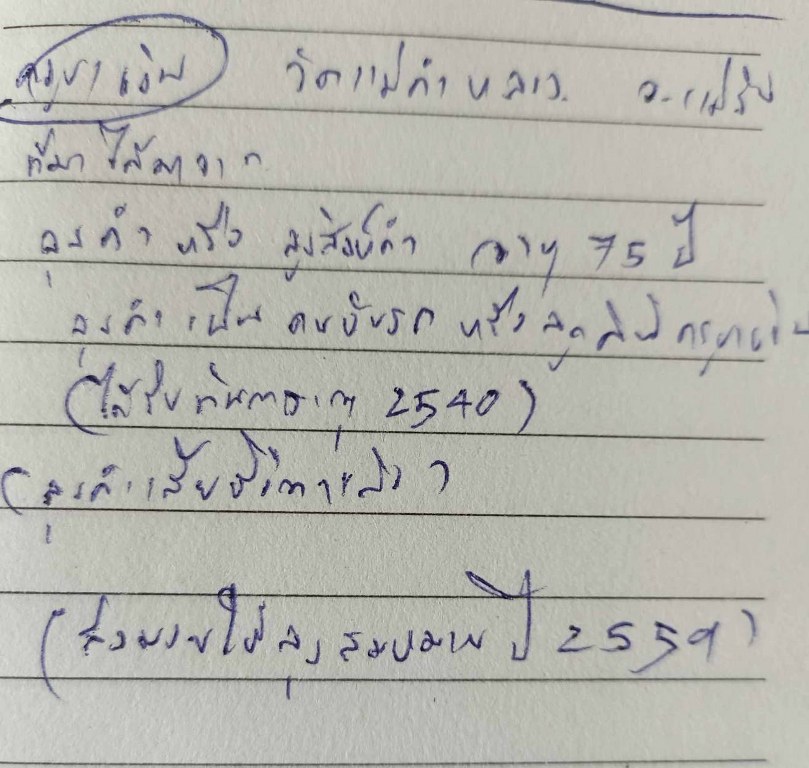 ครูบาเงิน วัดแม่คำหลวง อ.แม่จัน
ที่มา ได้มาจาก
ลุงคำ หรือ ลุงสิงห์คำ อายุ 75 ปี
ลุงคำเป็น คนขับรถ หรือ ลูกศิษย์ครูบาเงิน
(ได้รับ ประมาณ 2540)
(ลุงคำเสียชีวิตแล้ว)
(ส่งมอบให้ ลุง สมหมาย ปี 2559)